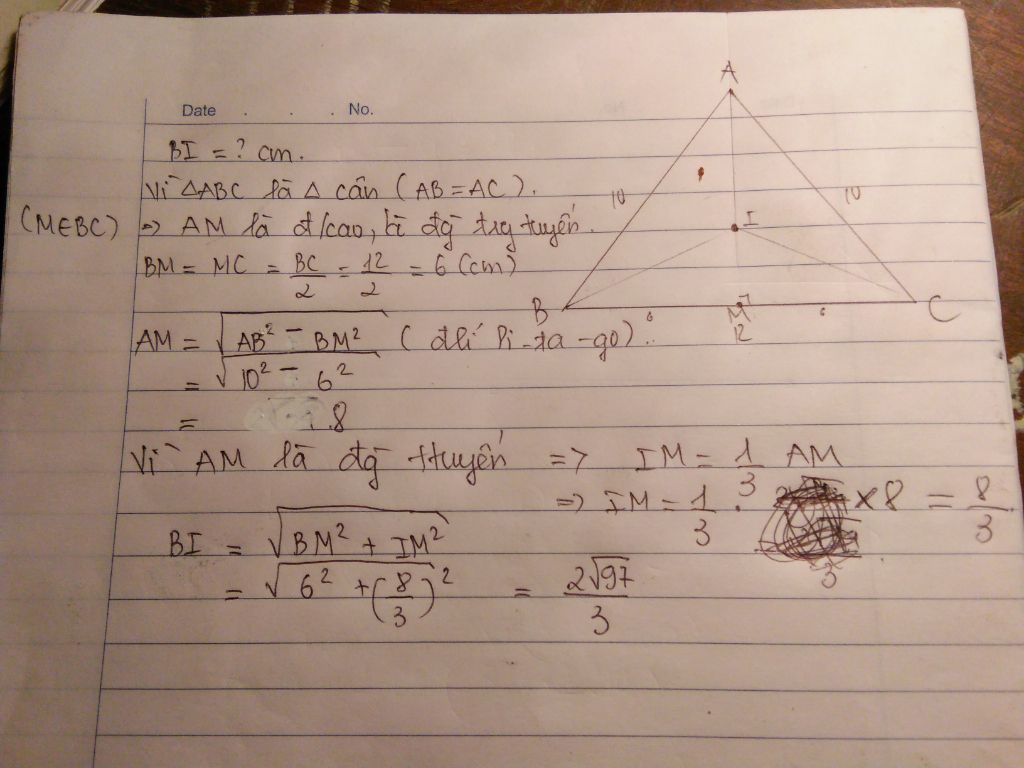 Date . . . No.
BI = ? cm.
Vì △ABC là △ cân (AB = AC).
(M∈BC) => AM là đ/cao, là đg trg tuyến.
BM = MC = BC/2 = 12/2 = 6 (cm)
AM = √(AB² - BM²) (đlí Pi-ta-go).
= √(10² - 6²)
= 8
Vì AM là đg ttuyến => IM = 1/3 AM
=> IM = 1/3 . x 8 = 8/3
BI = √(BM² + IM²)
= √(6² + (8/3)²) = 2√97/3
A
10 10
I
B M C
6 6
12